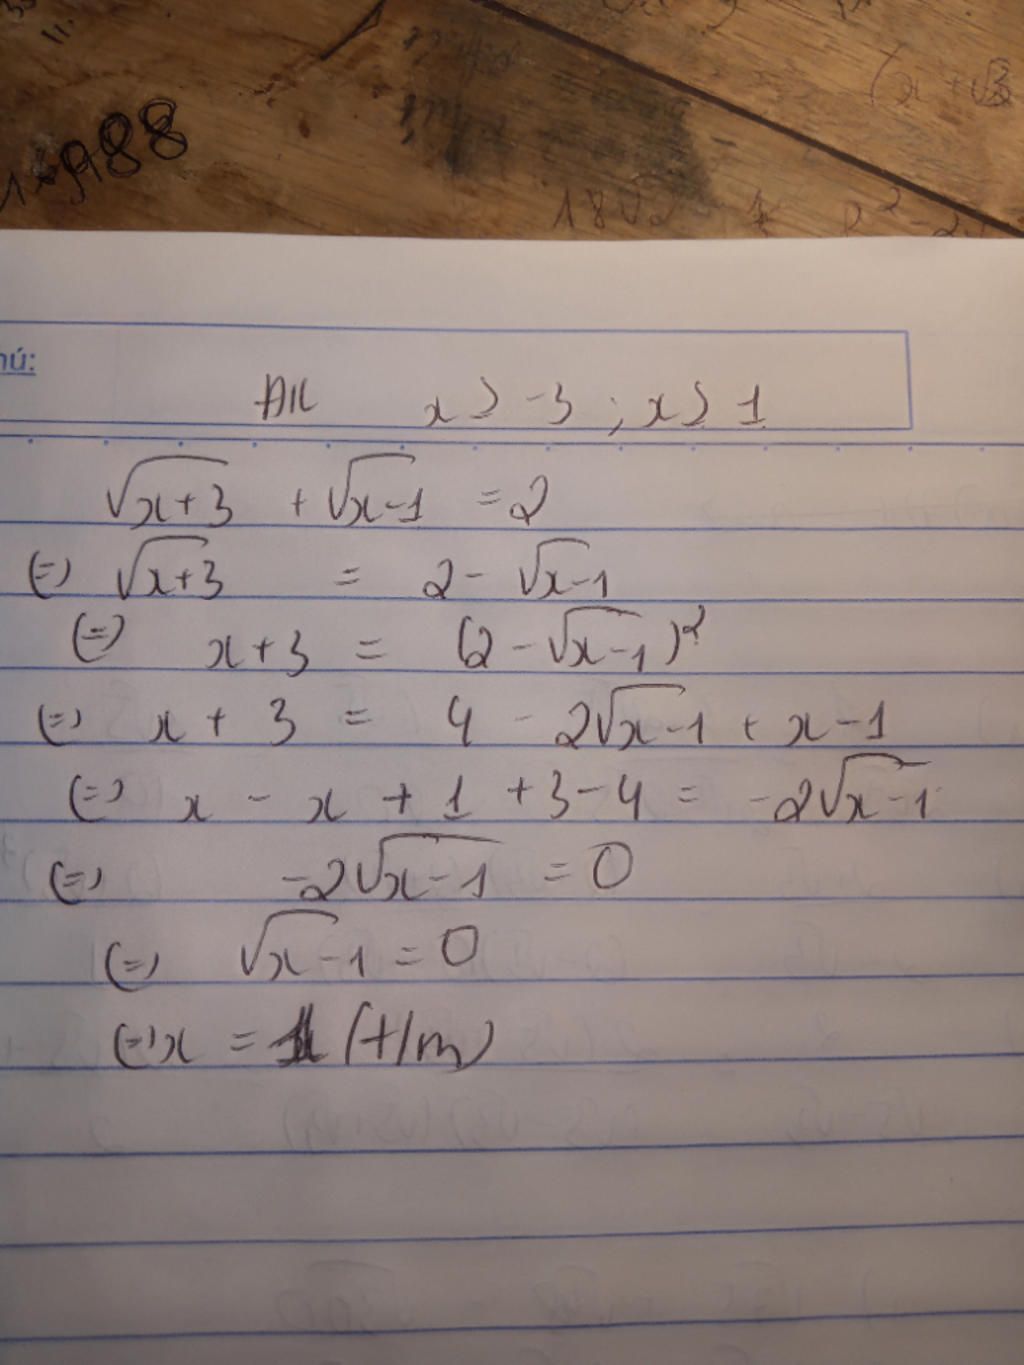 1988
18√2
hú:
ĐK x ≥ -3 ; x ≥ 1
√x+3 + √x-1 = 2
(=) √x+3 = 2 - √x-1
(=) x+3 = (2 - √x-1)²
(=) x + 3 = 4 - 2√x-1 + x-1
(=) x - x + 1 + 3 - 4 = -2√x-1
(=) -2√x-1 = 0
(=) √x-1 = 0
(=) x = 1 (t/m)